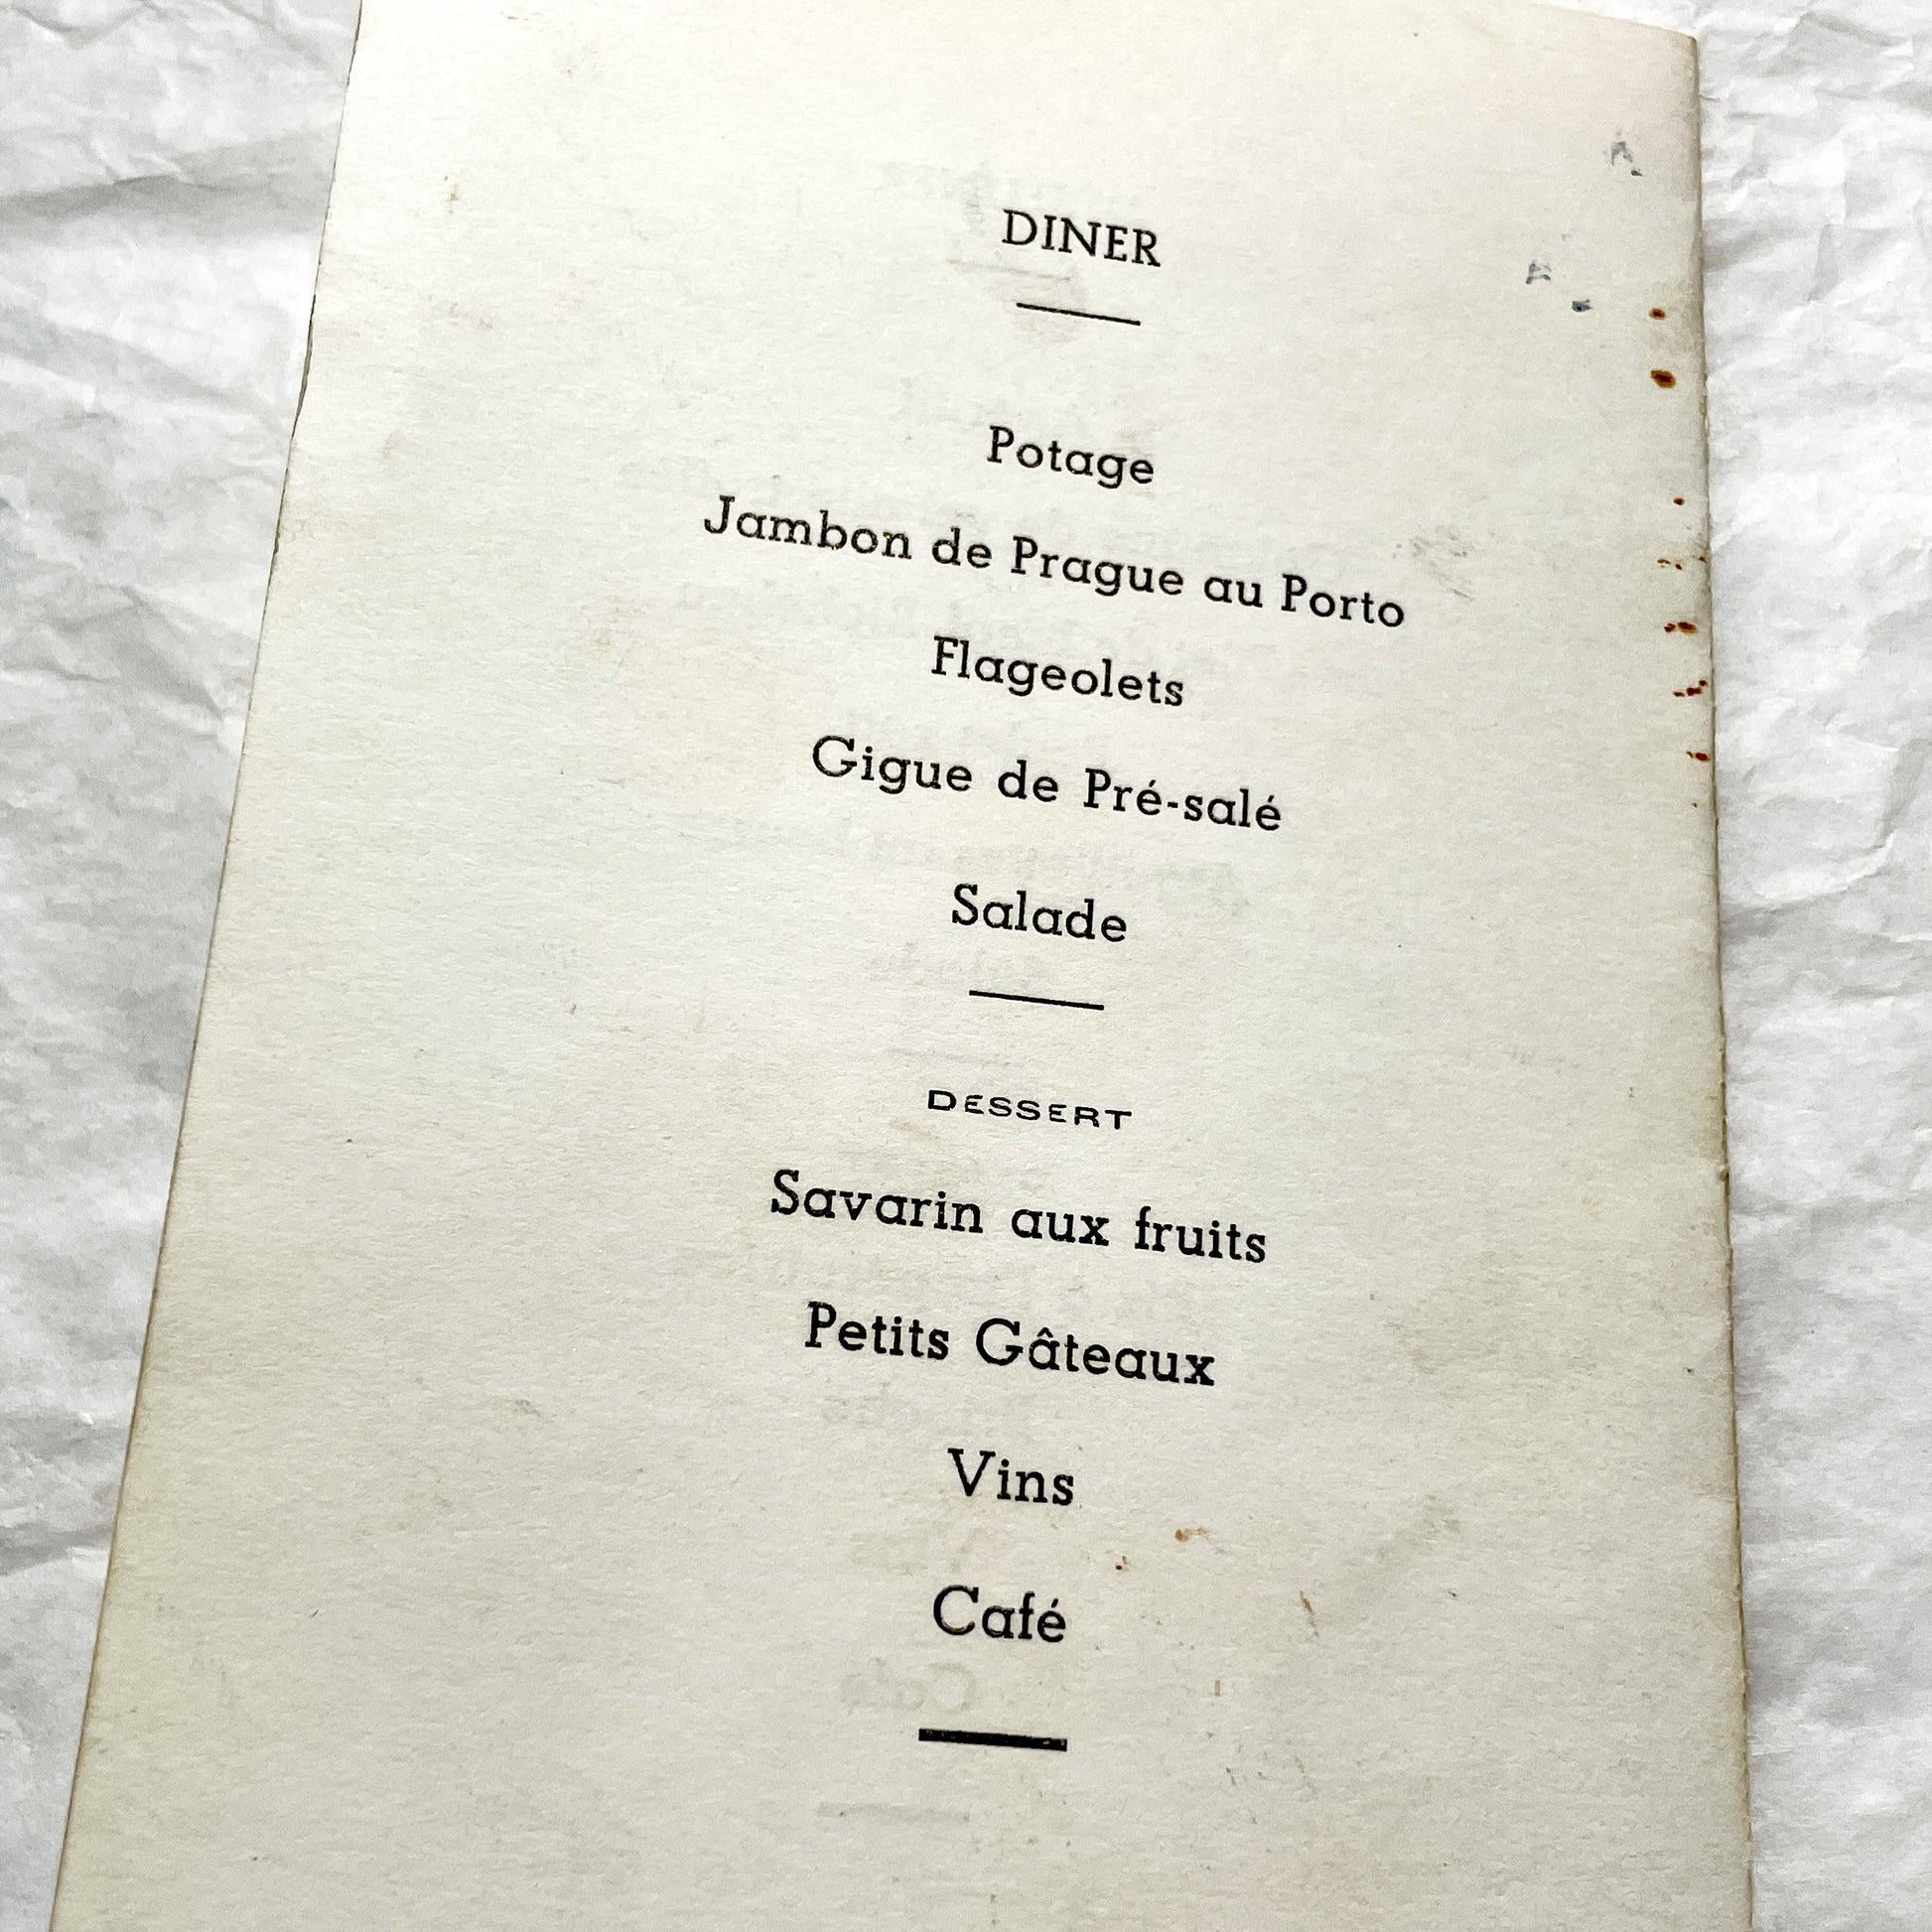 DINER
Potage
Jambon de Prague au Porto
Flageolets
Gigue de Pré-salé
Salade
DESSERT
Savarin aux fruits
Petits Gâteaux
Vins
Café